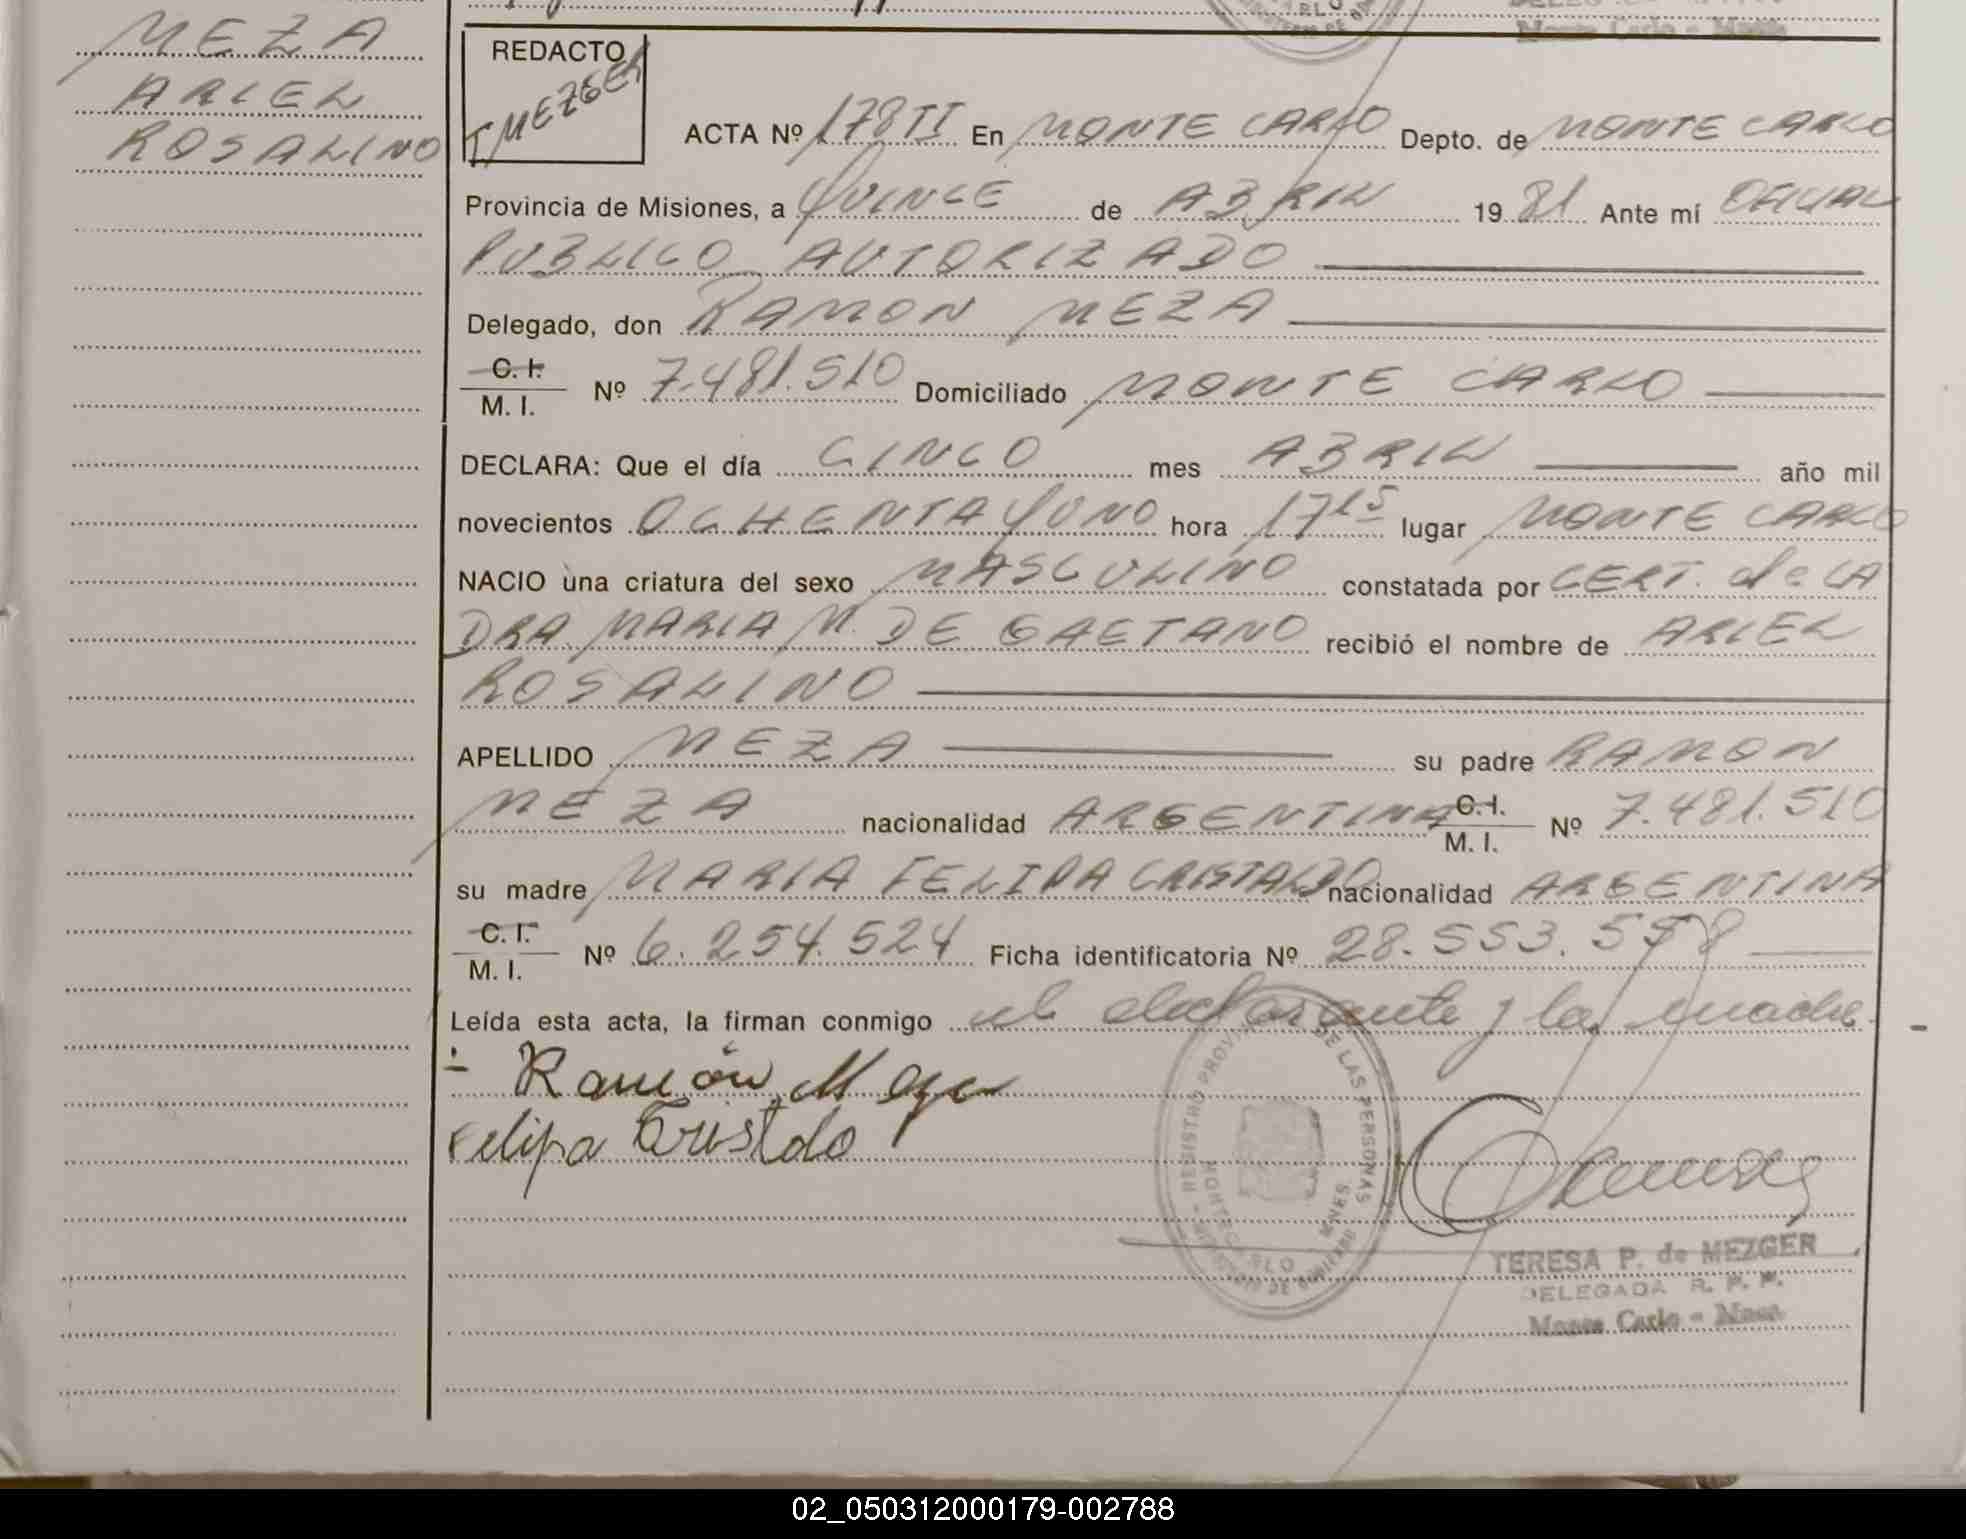 MEZA
ARIEL
ROSALINO
REDACTO
T. MEZGER
ACTA Nº 178 TI En MONTE CARLO Depto. de MONTE CARLO
Provincia de Misiones, a QUINCE de ABRIL 1981 Ante mí OFICIAL
PUBLICO AUTORIZADO
Delegado, don RAMON MEZA
C. I.
M. I. Nº 7.481.510 Domiciliado MONTE CARLO
DECLARA: Que el día CINCO mes ABRIL año mil
novecientos OCHENTA Y UNO hora 17 15 lugar MONTE CARLO
NACIO una criatura del sexo MASCULINO constatada por CERT. de LA
DRA MARIA M. DE GAETANO recibió el nombre de ARIEL
ROSALINO
APELLIDO MEZA su padre RAMON
MEZA nacionalidad ARGENTINA C. I. M. I. Nº 7.481.510
su madre MARIA FELIPA CRISTALDO nacionalidad ARGENTINA
C. I.
M. I. Nº 6.254.524 Ficha identificatoria Nº 28.553.558
Leída esta acta, la firman conmigo el declarante y la madre.
Ramón Meza
Felipa Cristaldo
REGISTRO PROVINCIAL DE LAS PERSONAS
MONTE CARLO MNES.
TERESA P. de MEZGER
DELEGADA R. P. P.
Monte Carlo - Mnes.
02_050312000179-002788